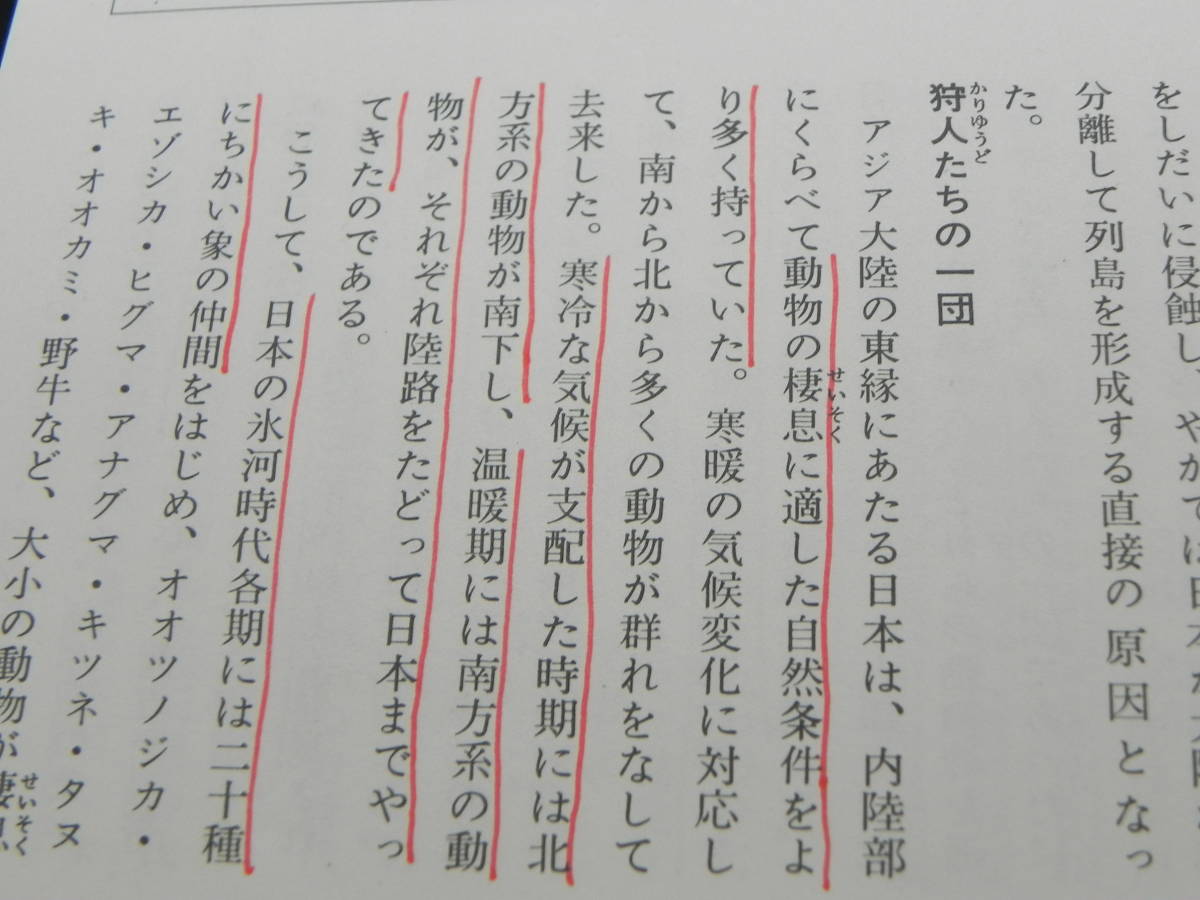 をしだいに侵蝕し、やがては日本
分離して列島を形成する直接の原因となっ
た。
狩人たちの一団
かりゆうど
アジア大陸の東縁にあたる日本は、内陸部
にくらべて動物の棲息に適した自然条件をよ
せいそく
り多く持っていた。寒暖の気候変化に対応し
て、南から北から多くの動物が群れをなして
去来した。寒冷な気候が支配した時期には北
方系の動物が南下し、温暖期には南方系の動
物が、それぞれ陸路をたどって日本までやっ
てきたのである。
こうして、日本の氷河時代各期には二十種
にちかい象の仲間をはじめ、オオツノジカ・
エゾシカ・ヒグマ・アナグマ・キツネ・タヌ
キ・オオカミ・野牛など、大小の動物が棲息
せいそく